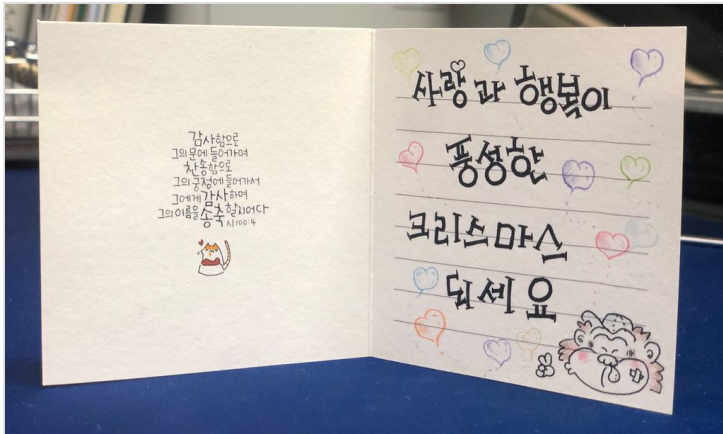 감사함으로
그의 문에 들어가며
찬송함으로
그의 궁정에 들어가서
그에게 감사하며
그의 이름을 송축할지어다
시 100:4
사랑과 행복이
풍성한
크리스마스
되세요